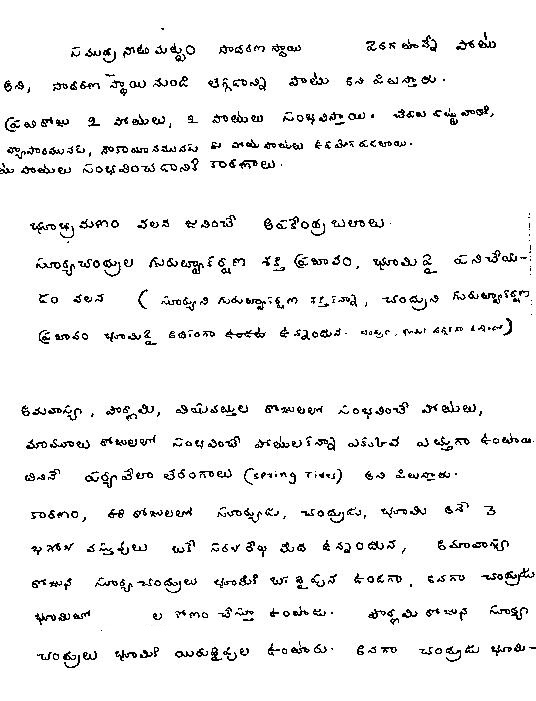 సముద్ర నీటి మట్టం సాధారణ స్థాయి పెరగటాన్ని పోటు
అని, సాధారణ స్థాయి నుండి తగ్గడాన్ని పాటు అని పిలుస్తారు.
ప్రతిరోజు 2 పోటులు, 2 పాటులు సంభవిస్తాయి.
వ్యాపారమునకు, నౌకాయానమునకు ఈ పోటు పాటులు ఉపయోగపడతాయి.
పాటులు సంభవించడానికి కారణాలు.
భూభ్రమణం వలన జనించే అపకేంద్ర బలాలు.
సూర్యచంద్రుల గురుత్వాకర్షణ శక్తి ప్రభావం, భూమిపై పనిచేయ-
డం వలన ( సూర్యుని గురుత్వాకర్షణ శక్తికన్నా, చంద్రుని గురుత్వాకర్షణ
ప్రభావం భూమిపై అధికంగా ఉండటం ఉన్నందున.
అమావాస్య, పౌర్ణమి, దినాలలో రోజులలో సంభవించే పోటులు,
మామూలు రోజులలో సంభవించే పోటులకన్నా ఎక్కువ ఎత్తుగా ఉంటాయి.
వీనినే పర్వవేలా తరంగాలు (spring tides) అని పిలుస్తారు.
కారణం, ఈ రోజులలో సూర్యుడు, చంద్రుడు, భూమి అనే 3
ఖగోళ వస్తువులు ఒకే సరళరేఖ మీద ఉన్నందున, అమావాస్య
రోజున సూర్య చంద్రులు భూమికి ఒకవైపున ఉండగా, అనగా చంద్రుడు
భూమితో ల కోణం చేస్తూ ఉంటాడు. పౌర్ణమి రోజున సూర్య
చంద్రులు భూమికి యిరువైపుల ఉంటారు. అనగా చంద్రుడు భూమి-